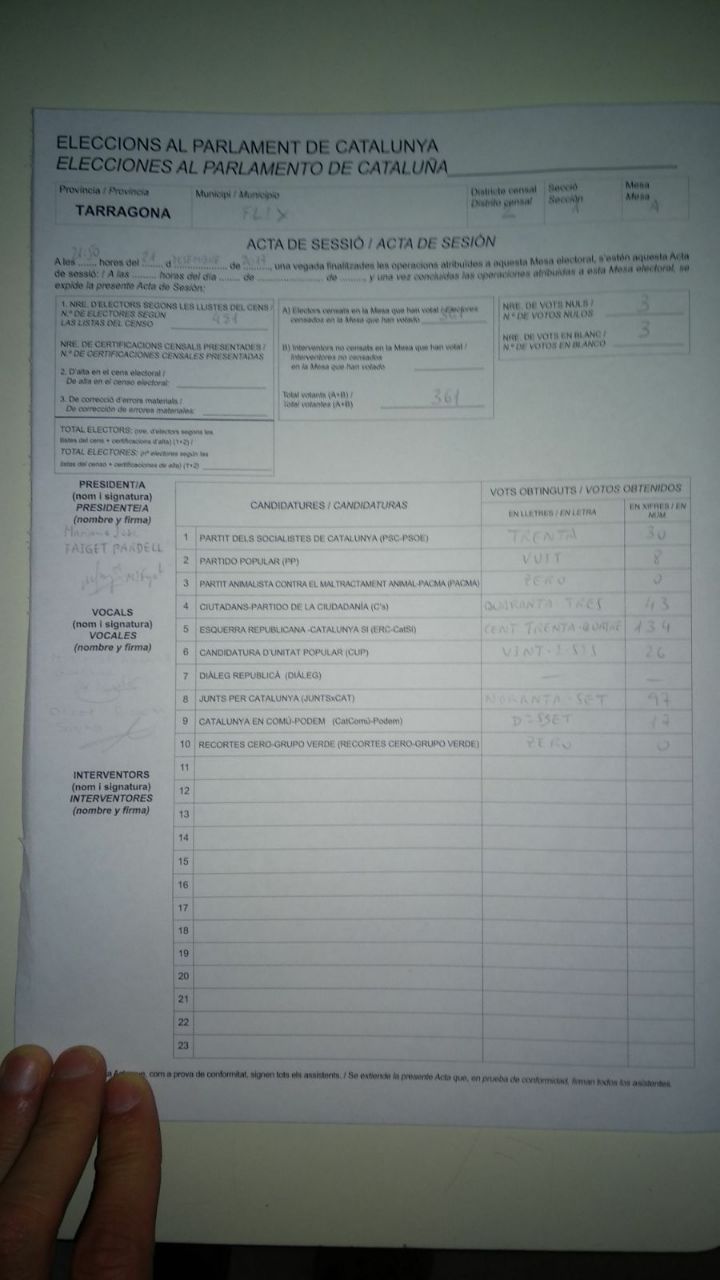 ELECCIONS AL PARLAMENT DE CATALUNYA
ELECCIONES AL PARLAMENTO DE CATALUÑA
Província / Provincia
TARRAGONA
Municipi / Municipio
FLIX
Districte censal
Distrito censal
2
Secció
Sección
A
Mesa
Mesa
A
ACTA DE SESSIÓ / ACTA DE SESIÓN
A les 21:50 hores del 21 d DESEMBRE de 2017, una vegada finalitzades les operacions atribuïdes a aquesta Mesa electoral, s'estén aquesta Acta
de sessió: / A las ......... horas del día ......... de ......................... de ........., y una vez concluidas las operaciones atribuidas a esta Mesa electoral, se
expide la presente Acta de Sesión:
1. NRE. D'ELECTORS SEGONS LES LLISTES DEL CENS /
N.º DE ELECTORES SEGÚN
LAS LISTAS DEL CENSO
NRE. DE CERTIFICACIONS CENSALS PRESENTADES /
N.º DE CERTIFICACIONES CENSALES PRESENTADAS
2. D'alta en el cens electoral /
De alta en el censo electoral:
3. De correcció d'errors materials /
De corrección de errores materiales:
TOTAL ELECTORS: (nre. d'electors segons les
llistes del cens + certificacions d'alta) (1+2) /
TOTAL ELECTORES: (nº electores según las
listas del censo + certificaciones de alta) (1+2)
A) Electors censats en la Mesa que han votat / Electores
censados en la Mesa que han votado 361
B) Interventors no censats en la Mesa que han votat /
Interventores no censados
en la Mesa que han votado
Total votants (A+B) /
Total votantes (A+B) 361
NRE. DE VOTS NULS /
N.º DE VOTOS NULOS 3
NRE. DE VOTS EN BLANC /
N.º DE VOTOS EN BLANCO 3
PRESIDENT/A
(nom i signatura)
PRESIDENTE/A
(nombre y firma)
TAIGET PARDELL
VOCALS
(nom i signatura)
VOCALES
(nombre y firma)
INTERVENTORS
(nom i signatura)
INTERVENTORES
(nombre y firma)
CANDIDATURES / CANDIDATURAS
VOTS OBTINGUTS / VOTOS OBTENIDOS
EN LLETRES / EN LETRA
EN XIFRES / EN NÚM.
1 PARTIT DELS SOCIALISTES DE CATALUNYA (PSC-PSOE) TRENTA 30
2 PARTIDO POPULAR (PP) VUIT 8
3 PARTIT ANIMALISTA CONTRA EL MALTRACTAMENT ANIMAL-PACMA (PACMA) ZERO 0
4 CIUTADANS-PARTIDO DE LA CIUDADANÍA (C's) QUARANTA-TRES 43
5 ESQUERRA REPUBLICANA -CATALUNYA SÍ (ERC-CatSí) CENT TRENTA-QUATRE 134
6 CANDIDATURA D'UNITAT POPULAR (CUP) VINT-I-SIS 26
7 DIÀLEG REPUBLICÀ (DIÀLEG) — —
8 JUNTS PER CATALUNYA (JUNTSxCAT) NORANTA-SET 97
9 CATALUNYA EN COMÚ-PODEM (CatComú-Podem) DISSET 17
10 RECORTES CERO-GRUPO VERDE (RECORTES CERO-GRUPO VERDE) ZERO 0
11
12
13
14
15
16
17
18
19
20
21
22
23
com a prova de conformitat, signen tots els assistents. / Se extiende la presente Acta que, en prueba de conformidad, firman todos los asistentes.